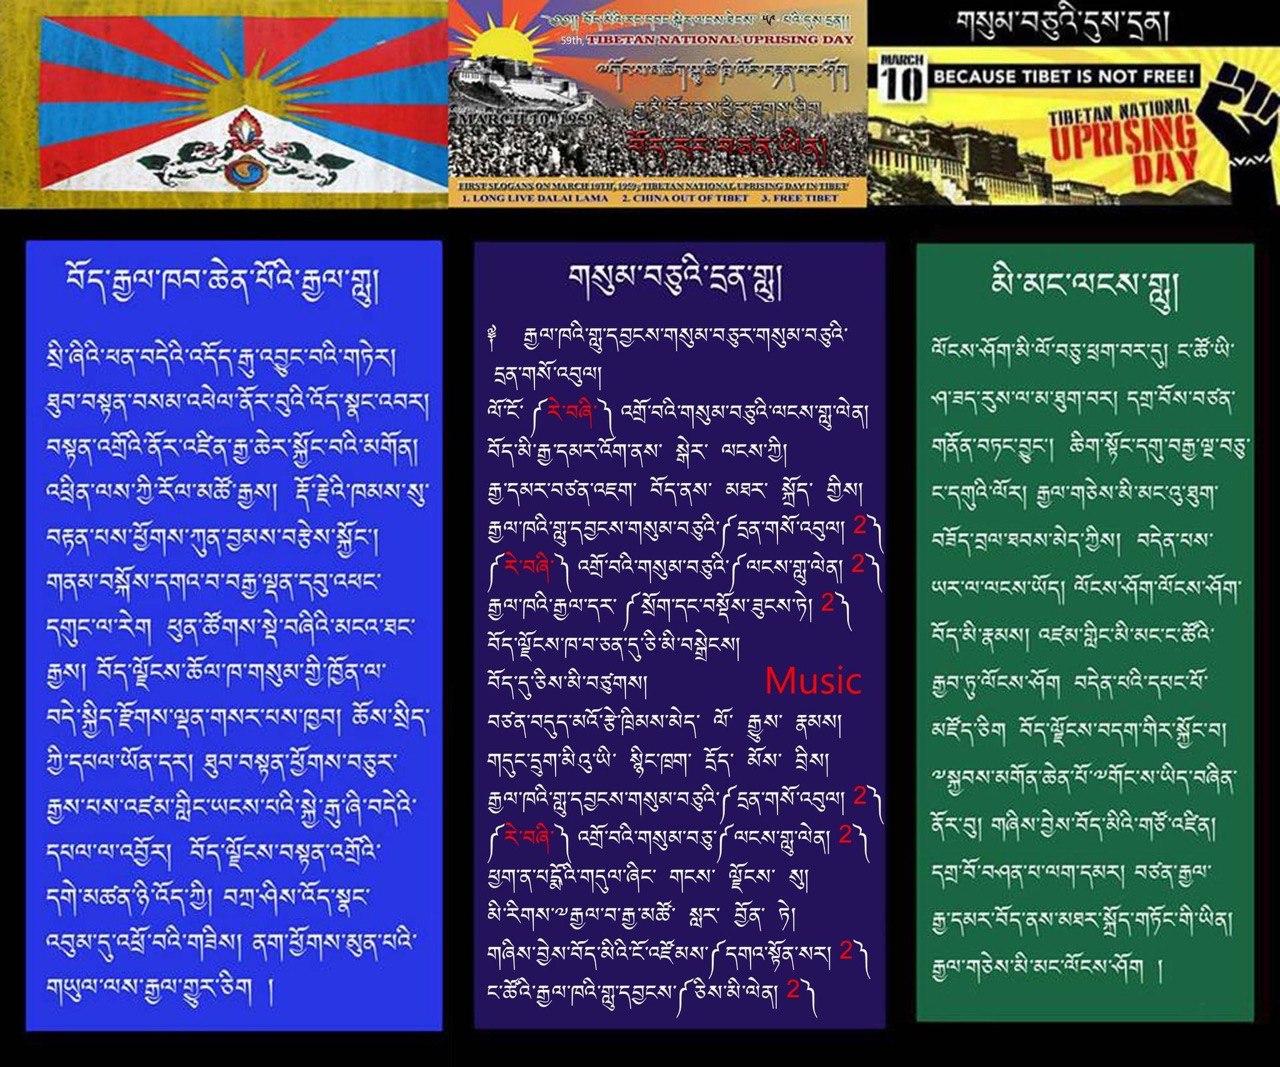 ༄༅།། བོད་མིའི་རང་དབང་སྒེར་ལངས་ཐེངས་ ༥༩ པའི་དུས་དྲན།།
59th, TIBETAN NATIONAL UPRISING DAY
MARCH 10, 1959
བོད་རང་བཙན་ཡིན།
FIRST SLOGANS ON MARCH 10TH, 1959; TIBETAN NATIONAL UPRISING DAY IN TIBET
1. LONG LIVE DALAI LAMA 2. CHINA OUT OF TIBET 3. FREE TIBET
གསུམ་བཅུའི་དུས་དྲན།
MARCH
10
BECAUSE TIBET IS NOT FREE!
TIBETAN NATIONAL
UPRISING
DAY
བོད་རྒྱལ་ཁབ་ཆེན་པོའི་རྒྱལ་གླུ།
སྲི་ཞིའི་ཕན་བདེའི་འདོད་རྒུ་འབྱུང་བའི་གཏེར།
ཐུབ་བསྟན་བསམ་འཕེལ་ནོར་བུའི་འོད་སྣང་འབར།
བསྟན་འགྲོའི་ནོར་འཛིན་རྒྱ་ཆེར་སྐྱོང་བའི་མགོན།
འཕྲིན་ལས་ཀྱི་རོལ་མཚོ་རྒྱས། རྡོ་རྗེའི་ཁམས་སུ་
བརྟན་པས་ཕྱོགས་ཀུན་བྱམས་བརྩེས་སྐྱོང་།
གནམ་བསྐོས་དགའ་བ་བརྒྱ་ལྡན་དབུ་འཕང་
དགུང་ལ་རེག ཕུན་ཚོགས་སྡེ་བཞིའི་མངའ་ཐང་
རྒྱས། བོད་ལྗོངས་ཆོལ་ཁ་གསུམ་གྱི་ཁྱོན་ལ་
བདེ་སྐྱིད་རྫོགས་ལྡན་གསར་པས་ཁྱབ། ཆོས་སྲིད་
ཀྱི་དཔལ་ཡོན་དར། ཐུབ་བསྟན་ཕྱོགས་བཅུར་
རྒྱས་པས་འཛམ་གླིང་ཡངས་པའི་སྐྱེ་རྒུ་ཞི་བདེའི་
དཔལ་ལ་འབྱོར། བོད་ལྗོངས་བསྟན་འགྲོའི་
དགེ་མཚན་ཉི་འོད་ཀྱི། བཀྲ་ཤིས་འོད་སྣང་
འབུམ་དུ་འཕྲོ་བའི་གཟིས། ནག་ཕྱོགས་མུན་པའི་
གཡུལ་ལས་རྒྱལ་གྱུར་ཅིག །
གསུམ་བཅུའི་དྲན་གླུ།
༈ རྒྱལ་ཁའི་གླུ་དབྱངས་གསུམ་བཅུར་གསུམ་བཅུའི་
དྲན་གསོ་འབུལ།
ལོ་ངོ་ ༼རེ་བཞི་༽ འགྲོ་བའི་གསུམ་བཅུའི་ལངས་གླུ་ལེན།
བོད་མི་རྒྱ་དམར་འོག་ནས་ སྒེར་ ལངས་ཀྱི།
རྒྱ་དམར་བཙན་འཇག་ བོད་ནས་ མཐར་ སྐྲོད་ གྱིས།
རྒྱལ་ཁའི་གླུ་དབྱངས་གསུམ་བཅུའི་༼དྲན་གསོ་འབུལ། 2༽
༼རེ་བཞི་༽ འགྲོ་བའི་གསུམ་བཅུའི་༼ལངས་གླུ་ལེན། 2༽
རྒྱལ་ཁའི་རྒྱལ་དར་ ༼སྲོག་དང་བསྡོས་ཟུངས་ཏེ། 2༽
བོད་ལྗོངས་ཁ་བ་ཅན་དུ་ཅི་མི་བསྒྲེངས།
བོད་དུ་ཅིས་མི་བཙུགས།
Music
བཙན་བདུད་མའོ་རྩེ་ཁྲིམས་མེད་ ལོ་ རྒྱུས་ རྣམས།
གདུང་དྲུག་མིའུ་ཡི་ སྙིང་ཁྲག་ དྲོད་ མོས་ བྲིས།
རྒྱལ་ཁའི་གླུ་དབྱངས་གསུམ་བཅུའི་༼དྲན་གསོ་འབུལ། 2༽
༼རེ་བཞི་༽ འགྲོ་བའི་གསུམ་བཅུ་༼ལངས་གླུ་ལེན། 2༽
ཕྱག་ན་པདྨོའི་གདུལ་ཞིང་ གངས་ ལྗོངས་ སུ།
མི་རིགས་༧རྒྱལ་བ་རྒྱ་མཚོ་ སླར་ བྱོན་ ཏེ།
གཞིས་བྱེས་བོད་མིའི་ངོ་འཛོམས་༼དགའ་སྟོན་སར། 2༽
ང་ཚོའི་རྒྱལ་ཁའི་གླུ་དབྱངས་༼ཅིས་མི་ལེན། 2༽
མི་མང་ལངས་གླུ།
ལོངས་ཤོག་མི་ལོ་བཅུ་ཕྲག་བར་དུ། ང་ཚོ་ཡི་
ཤ་ཟད་རུས་ལ་མ་ཐུག་བར། དགྲ་བོས་བཙན་
གནོན་བཏང་བྱུང་། ཆིག་སྟོང་དགུ་བརྒྱ་ལྔ་བཅུ་
ང་དགུའི་ལོར། རྒྱལ་གཅེས་མི་མང་འུ་ཐུག་
བཟོད་བྲལ་ཐབས་མེད་ཀྱིས། བདེན་པས་
ཡར་ལ་ལངས་ཡོད། ལོངས་ཤོག་ལོངས་ཤོག་
བོད་མི་རྣམས། འཛམ་གླིང་མི་མང་ང་ཚོའི་
རྒྱབ་ཏུ་ལོངས་ཤོག བདེན་པའི་དཔང་པོ་
མཛོད་ཅིག བོད་ལྗོངས་བདག་གིར་སྐྱོང་བ།
༧སྐྱབས་མགོན་ཆེན་པོ་༧གོང་ས་ཡིད་བཞིན་
ནོར་བུ། གཞིས་བྱེས་བོད་མིའི་གཙོ་འཛིན།
དགྲ་བོ་བཤན་པ་ལག་དམར། བཙན་རྒྱལ་
རྒྱ་དམར་བོད་ནས་མཐར་སྐྲོད་གཏོང་གི་ཡིན།
རྒྱལ་གཅེས་མི་མང་ལོངས་ཤོག །